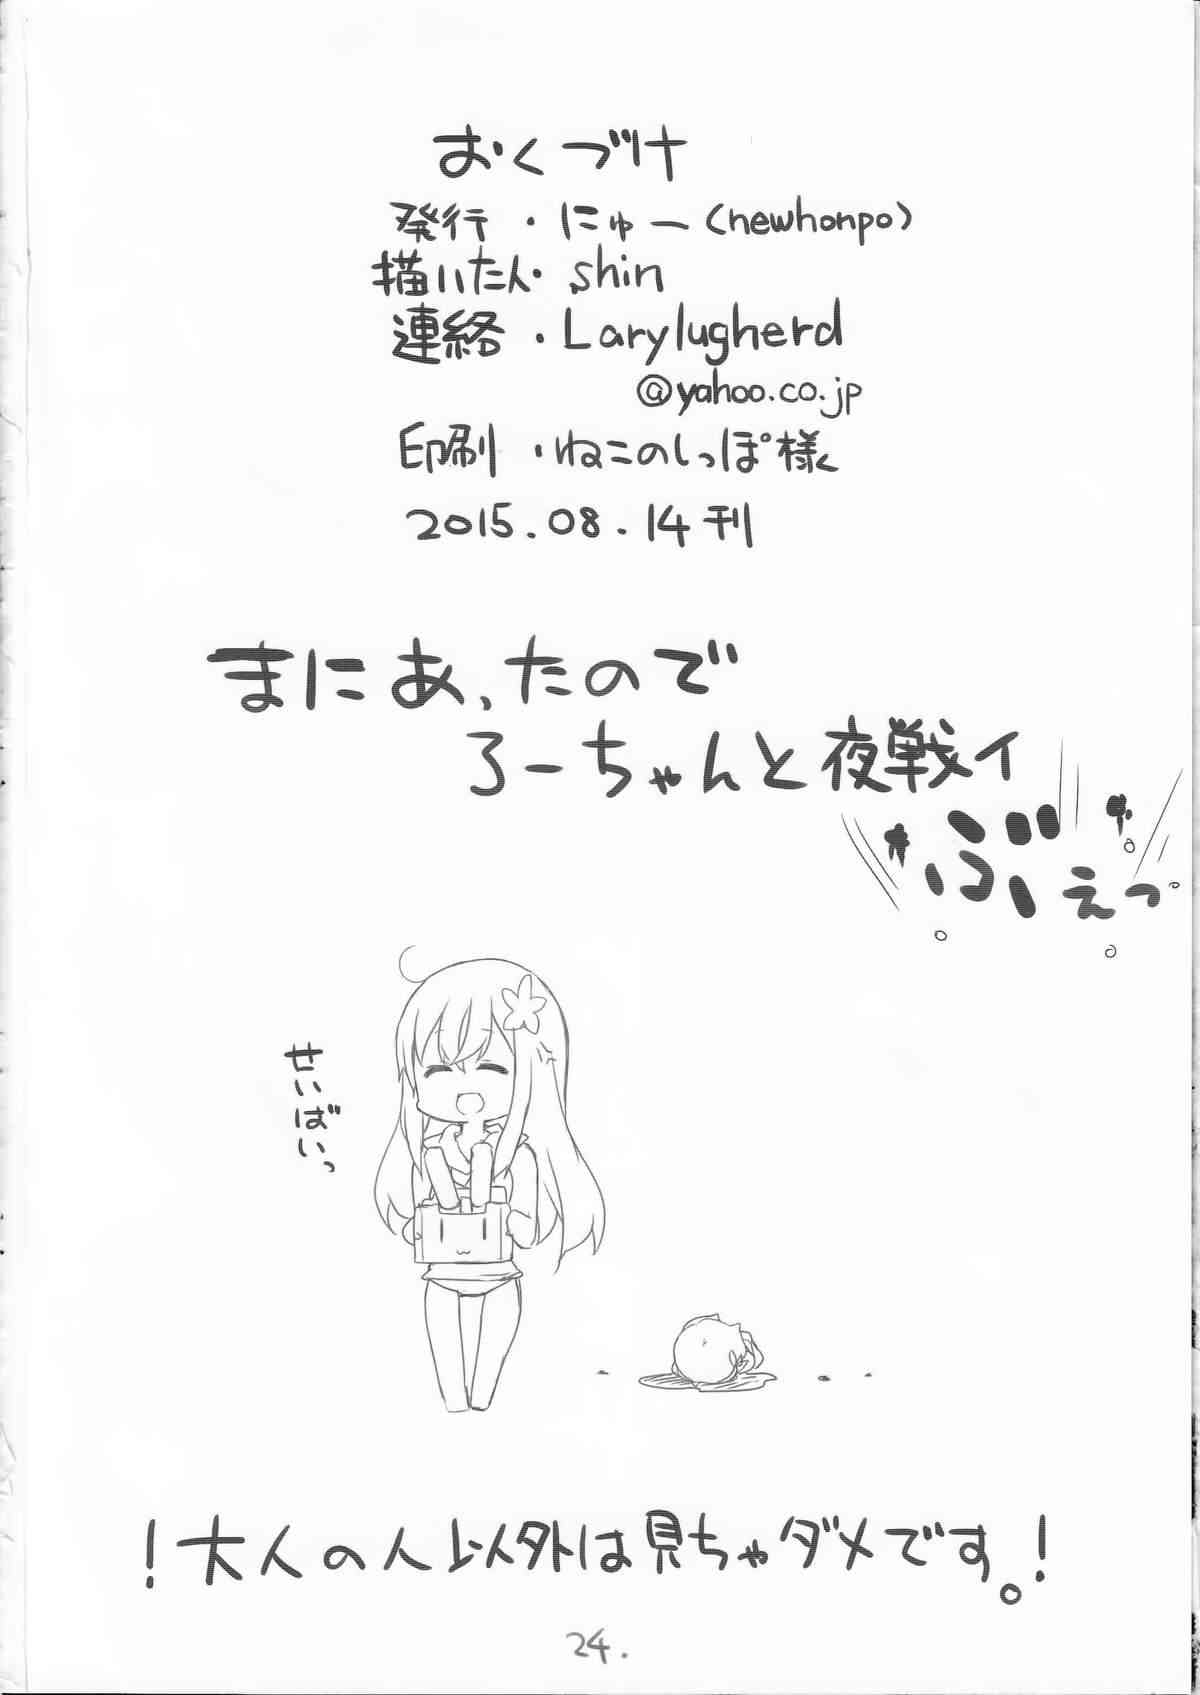 おくづけ
発行・にゅー(newhonpo)
描いたん・shin
連絡・Larylugherd
@yahoo.co.jp
印刷・ねこのしっぽ様
2015.08.14刊
まにあったので
ろーちゃんと夜戦イ
ぶぇっ
せいばいっ
!大人の人以外は見ちゃダメです。!
24.